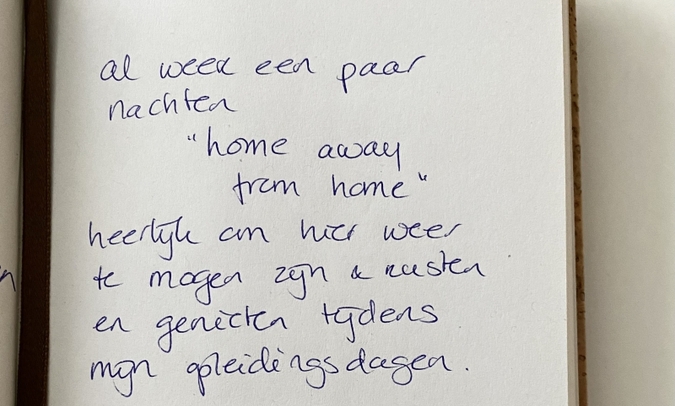 al weer een paar
nachten
"home away
from home"
heerlijk om hier weer
te mogen zijn & rusten
en genieten tijdens
mijn opleidingsdagen.